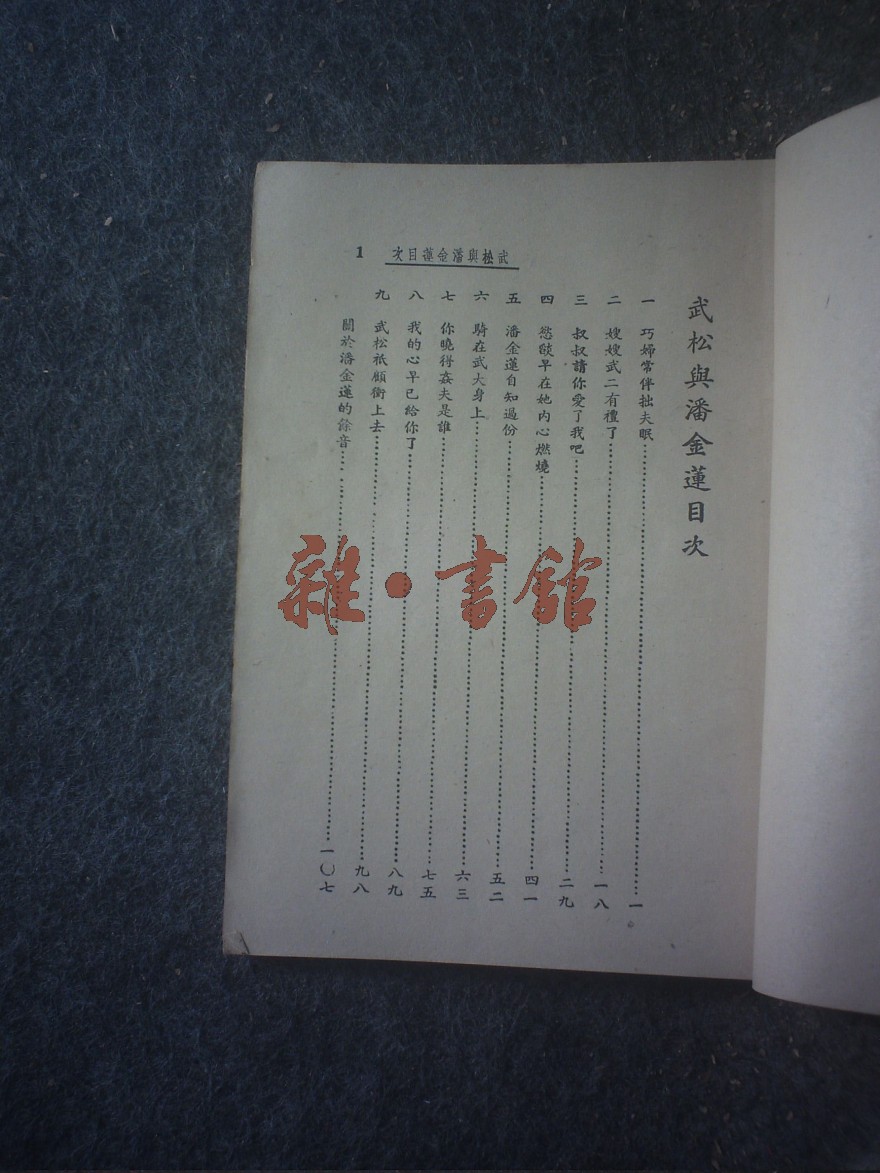 武松與潘金蓮目次 1
武松與潘金蓮目次
一 巧婦常伴拙夫眠……一
二 嫂嫂武二有禮了……一八
三 叔叔請你愛了我吧……二九
四 慾燄早在她內心燃燒……四一
五 潘金蓮自知過份……五二
六 騎在武大身上……六三
七 你曉得姦夫是誰……七五
八 我的心早已給你了……八九
九 武松祇顧街上去……九八
關於潘金蓮的餘音……一〇七
雜·書館